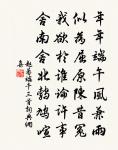 年年端午風兼雨
似為屈原陳昔冤
我欲於誰論許事
舍南舍北鵓鳩喧
趙蕃端午三首